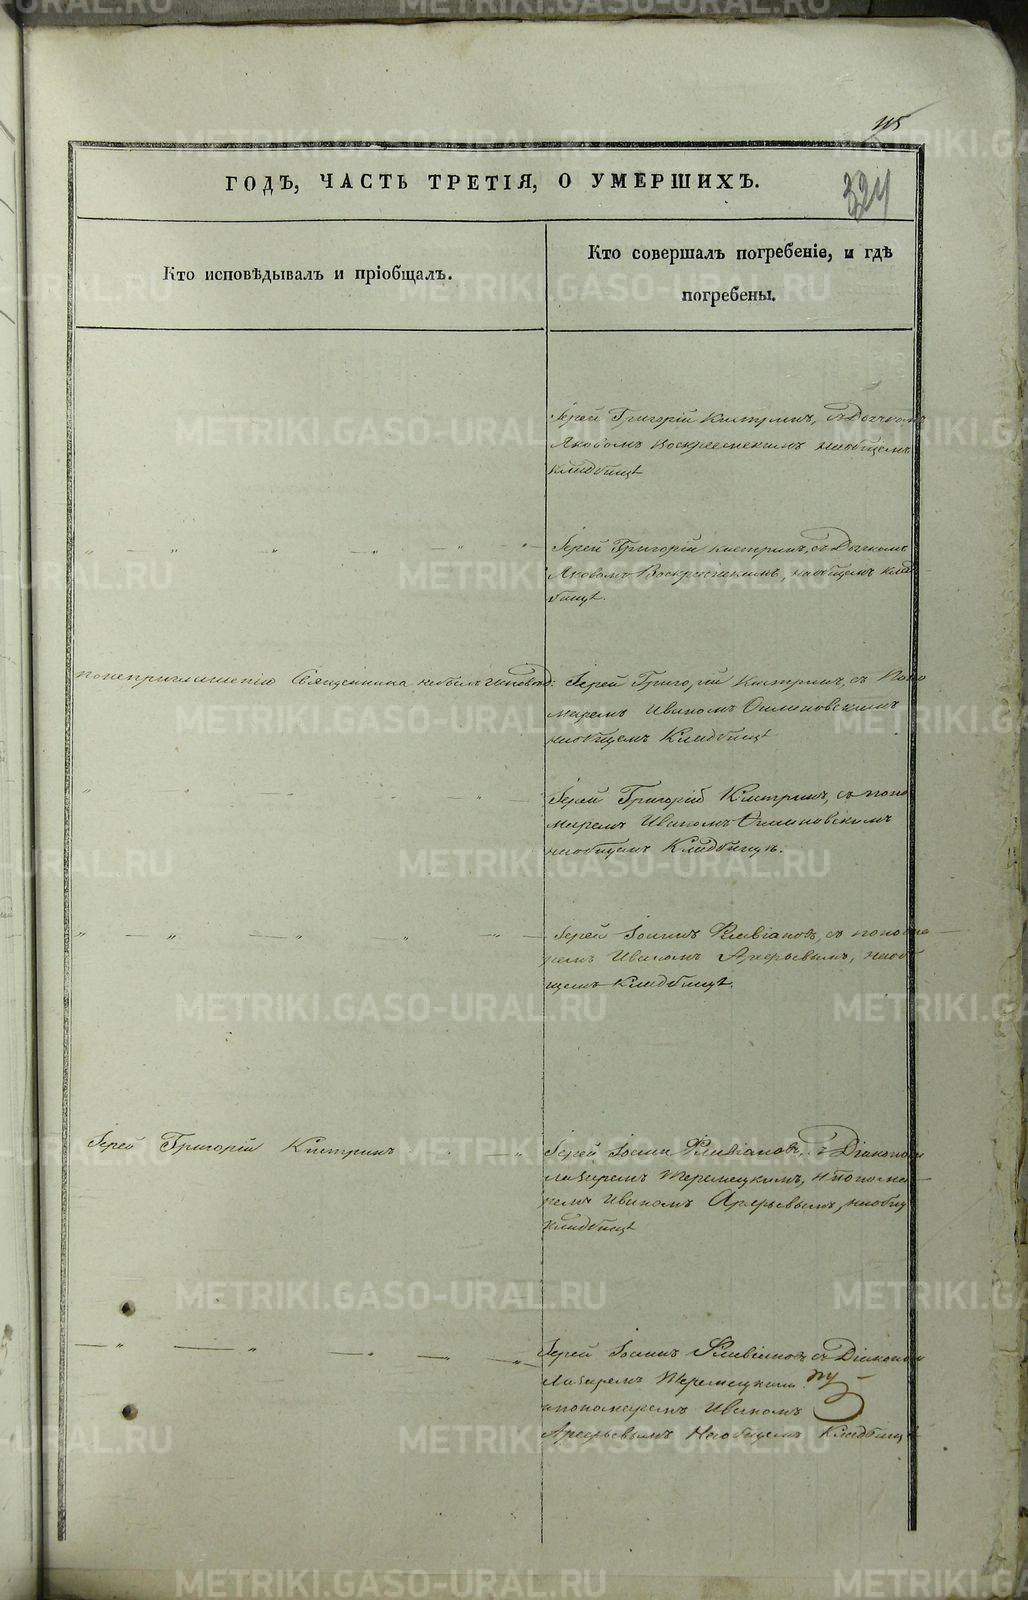 115
324
ГОДЪ, ЧАСТЬ ТРЕТІЯ, О УМЕРШИХЪ.
Кто исповѣдывалъ и пріобщалъ.
Кто совершалъ погребеніе, и гдѣ
погребены.
Іерей Григорій Кистринъ, съ Дьячкомъ
Яковомъ Воскресенскимъ наобщемъ
кладбищѣ
Іерей Григорій Кистринъ, съ Дьячкомъ
Яковомъ Воскресенскимъ, наобщемъ клад
бищѣ.
понеприглашенію Священника небылъ исповѣд:
Іерей Григорій Кистринъ, съ Поно
маремъ Иваномъ
наобщемъ Кладбищѣ
Іерей Григорій Кистринъ, съ поно
маремъ Иваномъ
наобщемъ Кладбищѣ.
Іерей Іоаннъ Флавіановъ, съ понома
ремъ Иваномъ Арефьевымъ, наоб
щемъ Кладбищѣ.
Іерей Григорій Кистринъ
Іерей Іоаннъ Флавіановъ, съ Діакономъ
Лазаремъ и понома
ремъ Иваномъ Арефьевымъ, наобщ
кладбищѣ
Іерей Іоаннъ Флавіановъ съ Діакономъ
Лазаремъ
ипономаремъ Иваномъ
Арефьевымъ Наобщемъ Кладбищѣ
METRIKI.GASO-URAL.RU